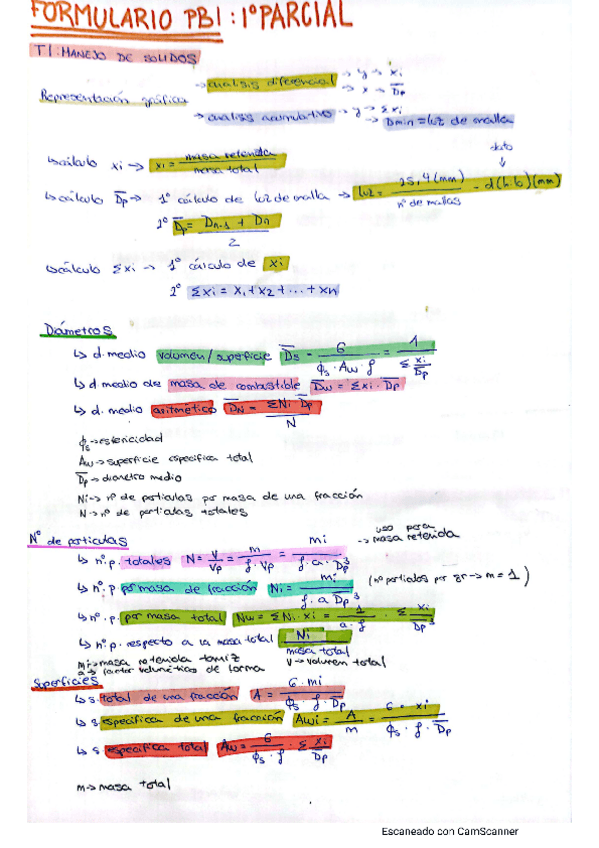 FORMULARIO PB1: 1º PARCIAL
T1: MANEJO DE SOLIDOS
Representación gráfica
→ análisis diferencial → y → xi
→ x → D̅p
→ análisis acumulativo → y → Σxi
→ Dmin = luz de malla
↳ cálculo xi → xi = masa retenida / masa total
dato
↓
↳ cálculo D̅p → 1º cálculo de luz de malla → luz = 25,4 (mm) / nº de mallas - d(h.b)(mm)
2º D̅p = Dn-1 + Dn / 2
↳ cálculo Σxi → 1º cálculo de xi
2º Σxi = x1 + x2 + ... + xn
Diámetros
↳ d. medio volumen/superficie D̅s = 6 / ϕs · Aw · ρ = 1 / Σ xi/D̅p
↳ d. medio de masa de combustible D̅w = Σxi · D̅p
↳ d. medio aritmético D̅N = ΣNi · D̅p / N
ϕs → esfericidad
Aw → superficie especifica total
D̅p → diametro medio
Ni → nº de particulas por masa de una fracción
N → nº de particulas totales
Nº de particulas
uso para
→ masa retenida
↳ nº. p. totales N = V / Vp = m / ρ · Vp = mi / ρ · a · D̅p³
↳ nº. p por masa de fracción Ni = mi / ρ · a D̅p³ (nº particulas por gr → m = 1)
↳ nº. p. por masa total Nw = ΣNi · xi = 1 / a · ρ · Σ xi / D̅p³
↳ nº. p. respecto a la masa total Ni / masa total
mi → masa retenida tamiz V → volumen total
a → factor volumétrico de forma
Superficies
↳ s. total de una fracción A = 6 · mi / ϕs · ρ · D̅p
↳ s. especifica de una fracción Awi = A / m = 6 · xi / ϕs · ρ · D̅p
↳ s. especifica total Aw = 6 / ϕs · ρ · Σ xi / D̅p
m → masa total
Escaneado con CamScanner